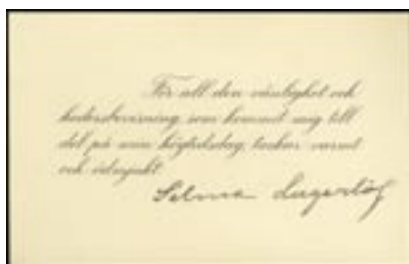 För all den vänlighet och
hedersbevisning, som kommit mig till
del på min högtidsdag, tackar varmt
och ödmjukt
Selma Lagerlöf